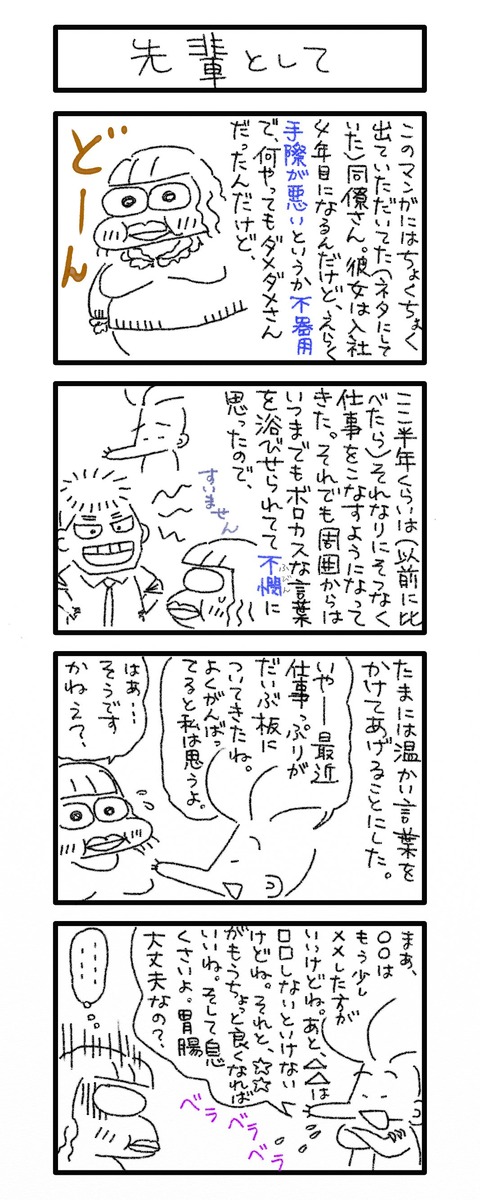 先輩として
このマンガにはちょくちょく
出ていただいてた(ネタにして
いた)同僚さん。彼女は入社
4年目になるんだけど、えらく
手際が悪いというか不器用
で、何やってもダメダメさん
だったんだけど、
どーん
ここ半年くらいは(以前に比
べたら)それなりにそつなく
仕事をこなすようになって
きた。それでも周囲からは
いつまでもボロカスな言葉
を浴びせられてて不憫に
ふびん
思ったので、
すいません
たまには温かい言葉を
かけてあげることにした。
いやー最近
仕事っぷりが
だいぶ板に
ついてきたね。
よくがんばっ
てると私は思うよ。
はぁ…
そうです
かねえ?
まあ、
○○は
もう少し
××した方が
いいけどね。あと、△△は
□□しないといけない
けどね。それと、☆☆
がもうちょっと良くなれば
いいね。そして息
くさいよ。胃腸
大丈夫なの?
……
ベラ
ベラ
ベラ